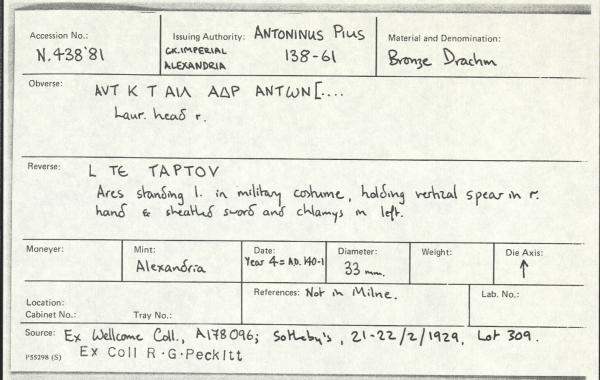 Accession No.: Issuing Authority: ANTONINUS PIUS Material and Denomination:
N.438'81 GK.IMPERIAL 138-61 Bronze Drachm
ALEXANDRIA
Obverse:
ΑVΤ Κ Τ ΑΙΛ ΑΔΡ ΑΝΤωΝ[....
Laur. head r.
Reverse: L ΤΕ ΤΑΡΤΟV
Ares standing l. in military costume, holding vertical spear in r.
hand & sheathed sword and chlamys in left.
Moneyer: Mint: Date: Diameter: Weight: Die Axis:
Alexandria Year 4 = A.D. 140-1 33 mm. ↑
References: Not in Milne. Lab. No.:
Location:
Cabinet No.: Tray No.:
Source: Ex Wellcome Coll., A178096; Sotheby's, 21-22/2/1929, Lot 309.
P55298 (S) Ex Coll R.G.Peckitt